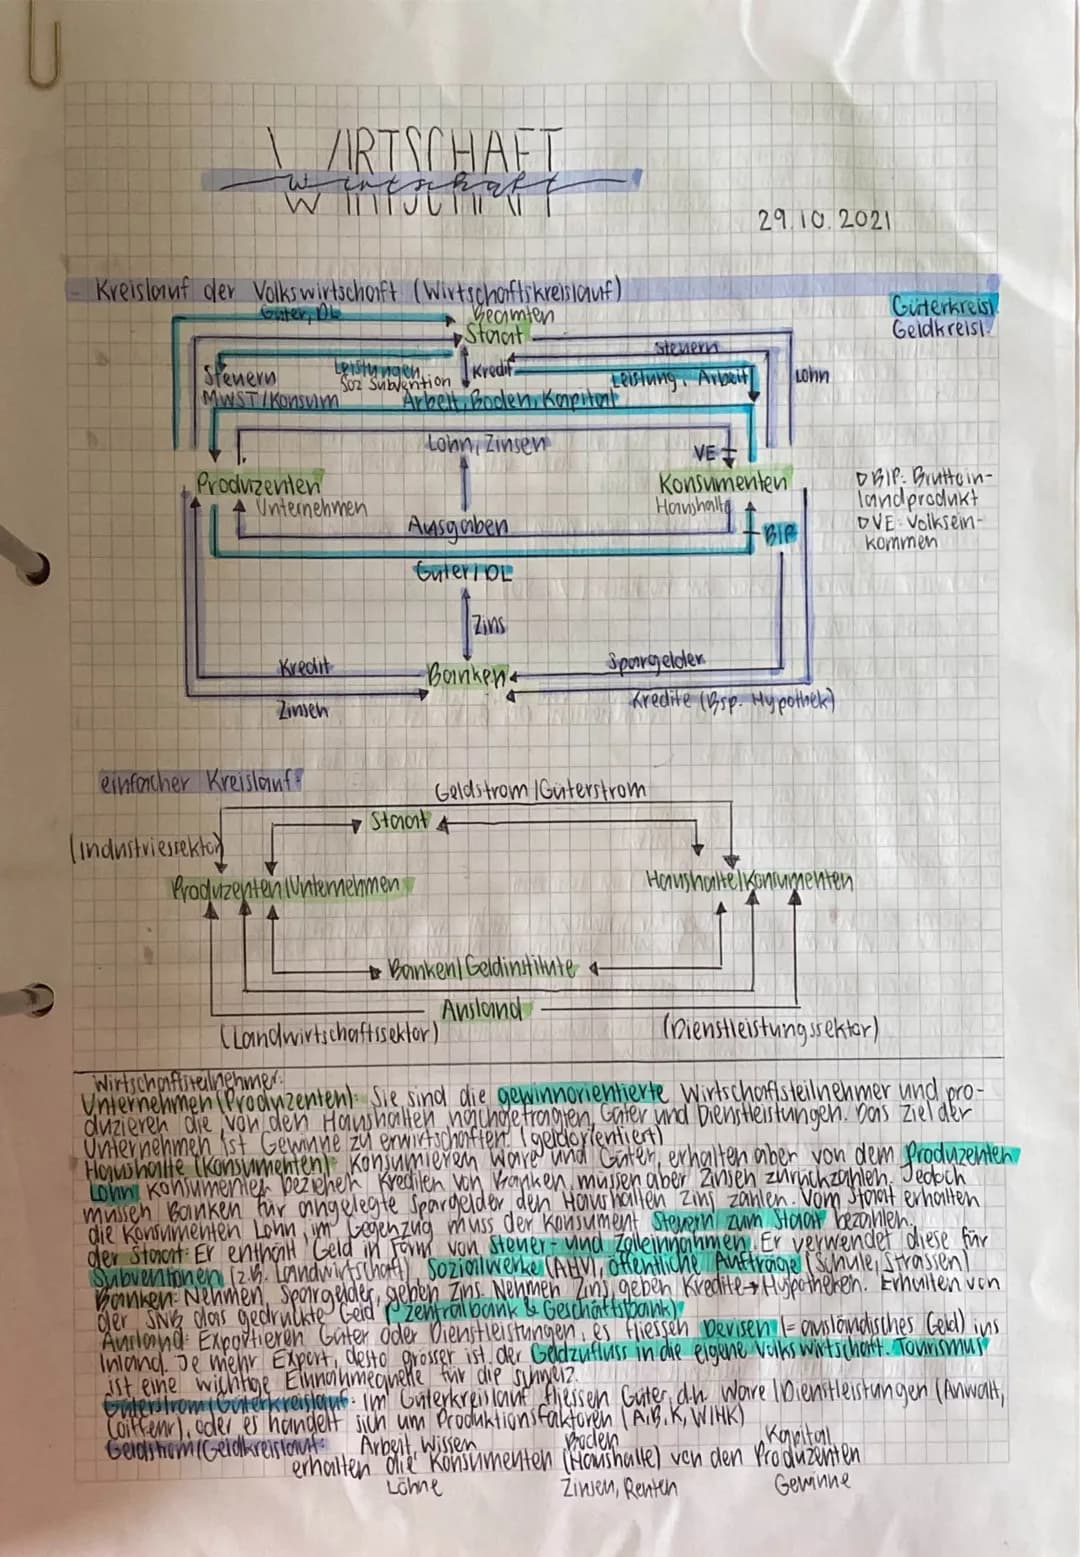 WIRTSCHAFT
wirtschaft
29.10.2021
- Kreislauf der Volkswirtschaft (Wirtschaftskreislauf)
Güterkreisl.
Geldkreisl.
Güter, DL
Beamten
Staat
Steuern
Leistungen
Soz Subvention
Kredit
Leistung, Arbeit
Lohn
Steuern
MWST/Konsum
Arbeit, Boden, Kapital
Lohn, Zinsen
VE
Produzenten
Unternehmen
Konsumenten
Haushalte
▷BIP: Bruttoin-
landprodukt
▷VE: Volksein-
kommen
Ausgaben
BIP
Güter/DL
Zins
Kredit
Banken
Spargelder
Zinsen
Kredite (Bsp. Hypothek)
einfacher Kreislauf:
Geldstrom/Güterstrom
Staat
(Industriesektor)
Produzenten/Unternehmen
Haushalte/Konsumenten
Banken/Geldinstitute
Ausland
(Landwirtschaftssektor)
(Dienstleistungssektor)
Wirtschaftsteilnehmer:
Unternehmen (Produzenten): Sie sind die gewinnorientierte Wirtschaftsteilnehmer und pro-
duzieren die von den Haushalten nachgefragten Güter und Dienstleistungen. Das Ziel der
Unternehmen ist Gewinne zu erwirtschaften. (geldorientiert)
Haushalte (Konsumenten): Konsumieren Ware und Güter, erhalten aber von dem Produzenten
Lohn. Konsumenten beziehen Krediten von Banken, müssen aber Zinsen zurückzahlen. Jedoch
müssen Banken für angelegte Spargelder den Haushalten Zins zahlen. Vom Staat erhalten
die Konsumenten Lohn, im Gegenzug muss der Konsument Steuern zum Staat bezahlen.
der Staat: Er enthält Geld in Form von Steuer- und Zolleinnahmen. Er verwendet diese für
Subventionen (z.B. Landwirtschaft), Sozialwerke (AHV), öffentliche Aufträge (Schule, Strassen)
Banken: Nehmen Spargelder, geben Zins. Nehmen Zins, geben Kredite→Hypotheken. Erhalten von
der SNB das gedruckte Geld (Zentralbank & Geschäftsbank)
Ausland: Exportieren Güter oder Dienstleistungen, es fliessen Devisen (= ausländisches Geld) ins
Inland. Je mehr Export, desto grösser ist der Geldzufluss in die eigene Volkswirtschaft. Tourismus
ist eine wichtige Einnahmequelle für die Schweiz.
Güterstrom/Güterkreislauf: Im Güterkreislauf fliessen Güter, d.h. Ware/Dienstleistungen (Anwalt,
Coiffeur), oder es handelt sich um Produktionsfaktoren (A, B, K, W/HK)
Geldstrom/Geldkreislauf: Arbeit, Wissen Boden Kapital
erhalten die Konsumenten (Haushalte) von den Produzenten
Löhne Zinsen, Renten Gewinne